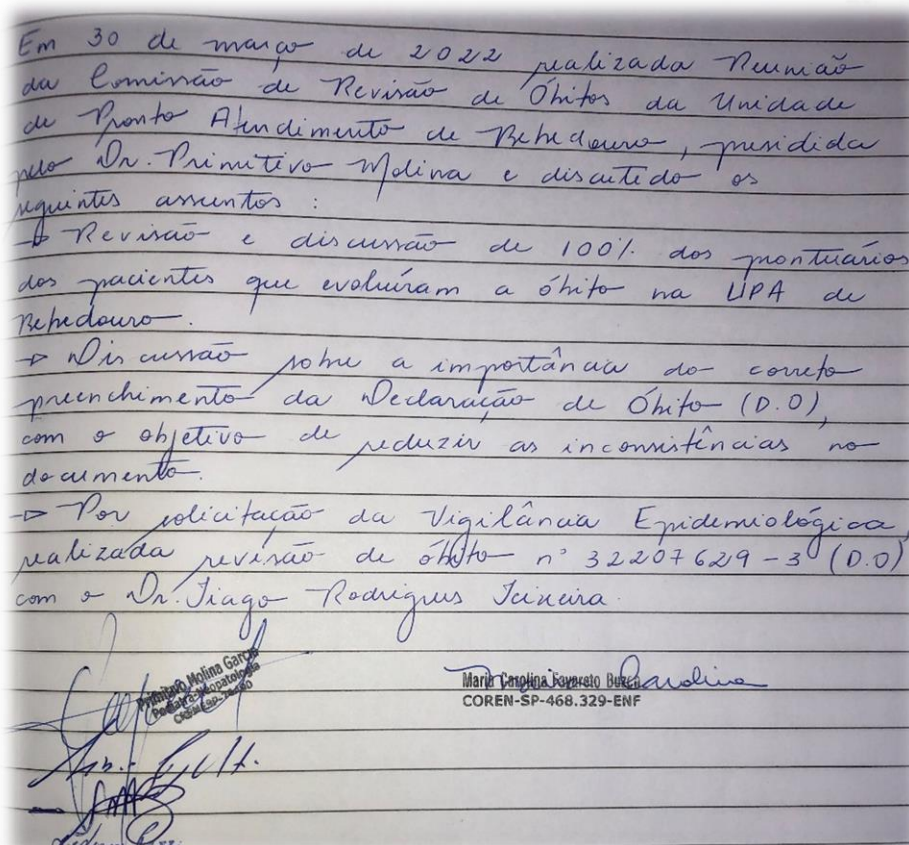 Em 30 de março de 2022 realizada Reunião
da Comissão de Revisão de Óbitos da Unidade
de Pronto Atendimento de Bebedouro, presidida
pelo Dr. Primitivo Molina e discutido os
seguintes assuntos :
→ Revisão e discussão de 100% dos prontuários
dos pacientes que evoluíram a óbito na UPA de
Bebedouro.
→ Discussão sobre a importância do correto
preenchimento da Declaração de Óbito (D.O),
com o objetivo de reduzir as inconsistências no
documento.
→ Por solicitação da Vigilância Epidemiológica,
realizada revisão de óbito n° 32207629-3 (D.O)
com o Dr. Tiago Rodrigues Teixeira.
Primitivo Molina Garcia
Pediatra
Maria Carolina
Maria Carolina Favareto
COREN-SP-468.329-ENF